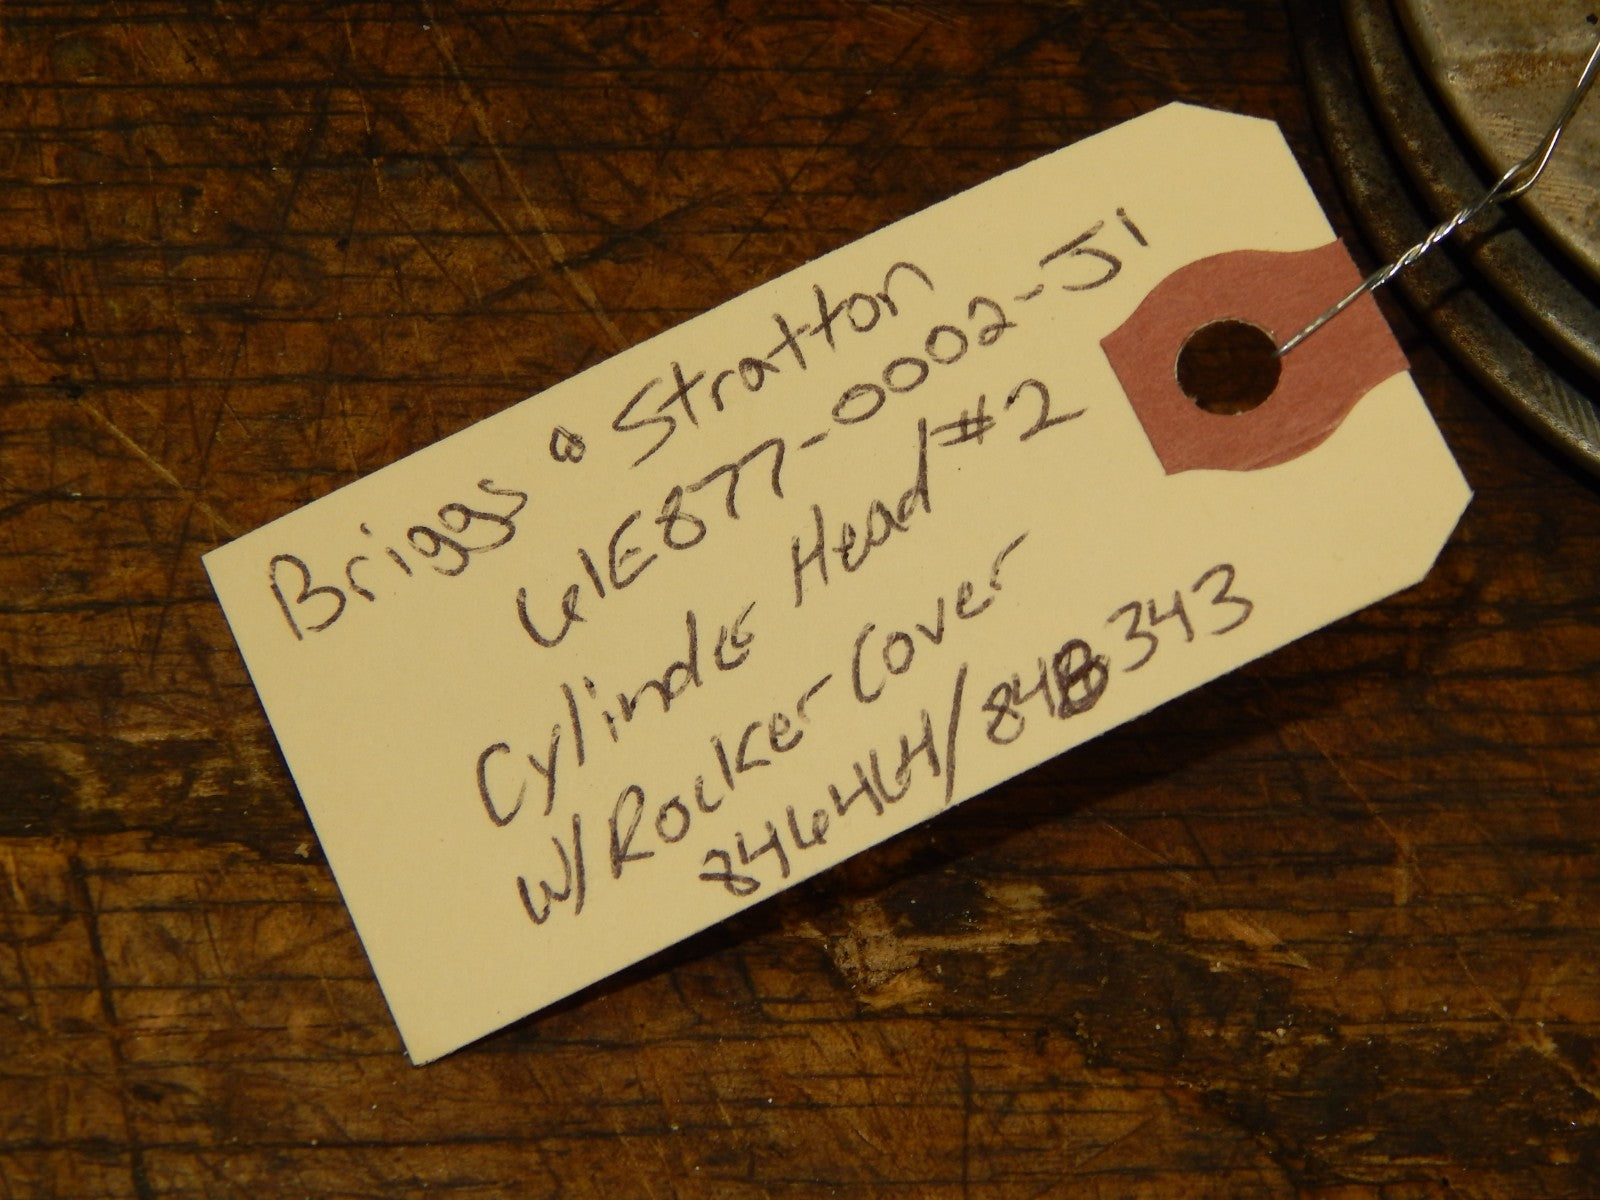 Briggs & Stratton
61E877-0002-J1
Cylinder Head #2
w/ Rocker Cover
846464/848343